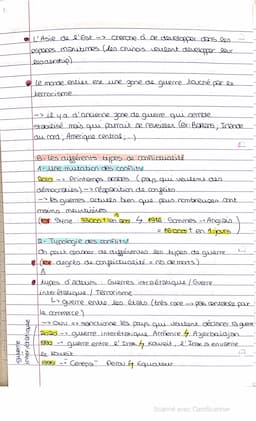 • L'Asie de l'Est --> cherche à se développer dans les
espaces maritimes (les chinois veulent développer leur
leadership)
• Le monde entier est une zone de guerre touché par le
terrorisme
--> il y a d'ancienne zone de guerre qui semble
stabilisé mais qui pourrait se réveiller (ex: Balkans, Irlande
du nord, Amérique central,...)
B- Les différents types de conflictualité
1- Une mutation des conflits
2010 --> Printemps arabes (pays qui veulent des
démocraties) --> réapparition de conflits
--> les guerres actuelles bien que plus nombreuses sont
moins meurtrières
(ex: Syrie 33000 t en 1 an ≠ 1916 Sommes - Anglais)
= 60000 t en 4 jours
2- Typologie des conflits
On peut classer de différentes les types de guerre
(ex: degrés de conflictualité = nb de morts)
A
• types d'acteurs : Guerres interétatique / Guerre
intraétatique / Terrorisme
↳ guerre entre les états (très rare --> pas rentable par
le commerce)
--> ONU --> sanctionne les pays qui veulent déclarer la guerre
2020 --> guerre interétatique Arménie ⚡ Azerbaïdjan
1990 --> guerre entre l'Irak ⚡ Koweït, l'Irak a envahie
le Koweït
1995 --> "Cenepa" Pérou ⚡ Equateur
Guerre
interétatique
Scanné avec CamScanner